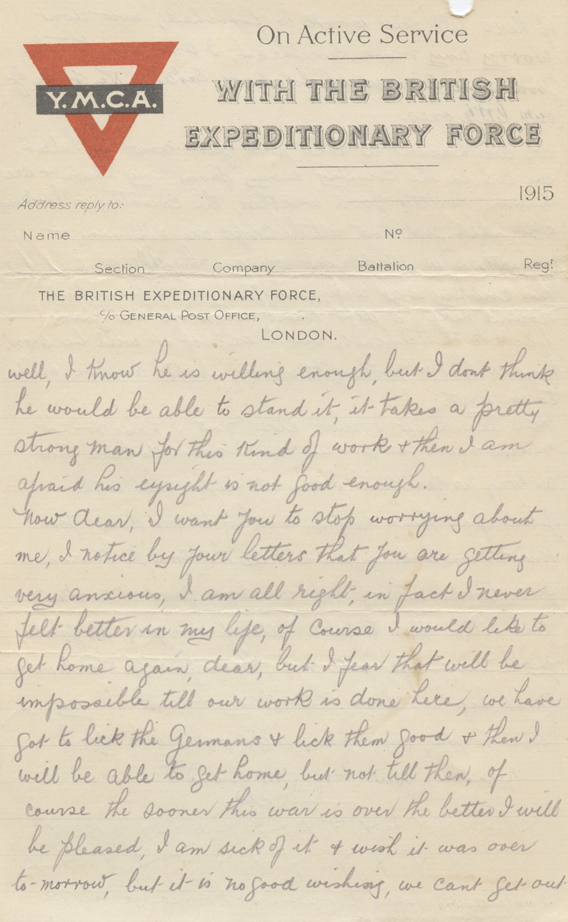 On Active Service
WITH THE BRITISH
EXPEDITIONARY FORCE
Y.M.C.A.
1915
Address reply to:
Name Nº
Section Company Battalion Regt
THE BRITISH EXPEDITIONARY FORCE,
c/o GENERAL POST OFFICE,
LONDON.
well, I know he is willing enough, but I dont think
he would be able to stand it, it takes a pretty
strong man for this kind of work & then I am
afraid his eysight is not good enough.
Now dear, I want you to stop worrying about
me, I notice by your letters that you are getting
very anxious, I am all right, in fact I never
felt better in my life, of course I would like to
get home again, dear, but I fear that will be
impossible till our work is done here, we have
got to lick the Germans & lick them good & then I
will be able to get home, but not till then, of
course the sooner this war is over the better I will
be pleased, I am sick of it & wish it was over
to-morrow, but it is no good wishing, we cant get out